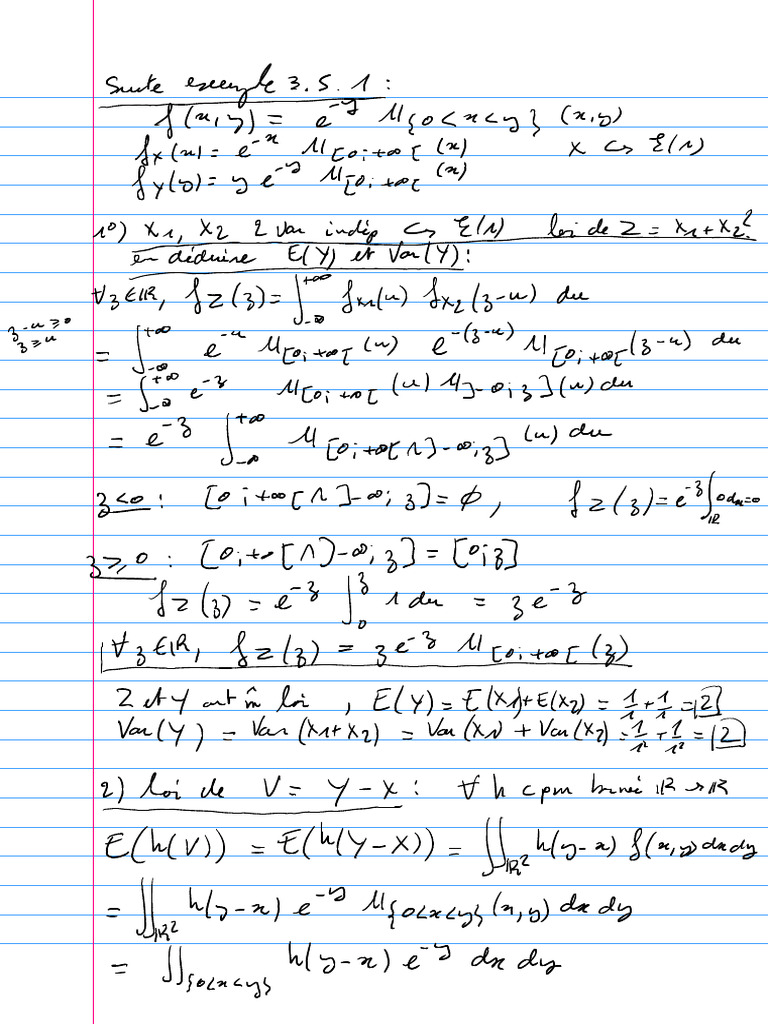 Suite exemple 3.5.1 :
f(x,y) = e^{-y} 𝟙_{{0<x<y}} (x,y)
f_X(x) = e^{-x} 𝟙_{[0;+∞[} (x)    X ↪ ℰ(1)
f_Y(y) = y e^{-y} 𝟙_{[0;+∞[} (x)
1°) X1, X2 2 var indép ↪ ℰ(1)    loi de Z = X1+X2 ?
en déduire E(Y) et Var(Y) :
∀z∈ℝ, f_Z(z) = ∫_{-∞}^{+∞} f_{X1}(u) f_{X2}(z-u) du
z-u ≥ 0
z ≥ u
= ∫_{-∞}^{+∞} e^{-u} 𝟙_{[0;+∞[}(u) e^{-(z-u)} 𝟙_{[0;+∞[}(z-u) du
= ∫_{-∞}^{+∞} e^{-z} 𝟙_{[0;+∞[}(u) 𝟙_{]-∞;z]}(u) du
= e^{-z} ∫_{-∞}^{+∞} 𝟙_{[0;+∞[∩]-∞;z]} (u) du
z<0 : [0;+∞[∩]-∞;z] = ∅, f_Z(z) = e^{-z} ∫_ℝ 0 du = 0
z≥0 : [0;+∞[∩]-∞;z] = [0;z]
f_Z(z) = e^{-z} ∫_0^z 1 du = z e^{-z}
∀z∈ℝ, f_Z(z) = z e^{-z} 𝟙_{[0;+∞[}(z)
Z et Y ont m̂ loi, E(Y) = E(X1)+E(X2) = 1/1 + 1/1 = 2
Var(Y) = Var(X1+X2) = Var(X1) + Var(X2) = 1/1² + 1/1² = 2
2) loi de V = Y-X : ∀ h cpm bornée ℝ→ℝ
E(h(V)) = E(h(Y-X)) = ∬_{ℝ²} h(y-x) f(x,y) dx dy
= ∬_{ℝ²} h(y-x) e^{-y} 𝟙_{{0<x<y}} (x,y) dx dy
= ∬_{{0<x<y}} h(y-x) e^{-y} dx dy